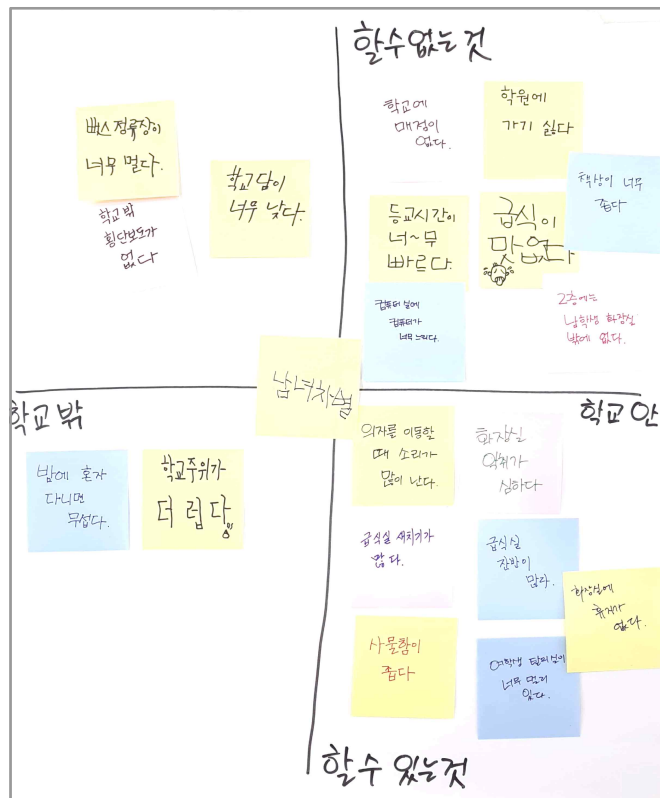 할수 없는 것
버스 정류장이
너무 멀다.
학교 밖
횡단보도가
없다
학교 담이
너무 낮다.
학교에
매점이
없다.
학원에
가기 싫다
책상이 너무
좁다
등교시간이
너~무
빠르다.
급식이
맛없다
컴퓨터 실에
컴퓨터가
너무 느리다.
2층에는
남학생 화장실
밖에 없다.
남녀차별
학교 밖
학교 안
밤에 혼자
다니면
무섭다.
학교주위가
더럽다
의자를 이동할
때 소리가
많이 난다.
화장실
악취가
심하다
급식실 새치기가
많다.
급식실
잔반이
많다.
화장실에
휴지가
없다.
사물함이
좁다
여학생 탈의실이
너무 멀리
있다.
할수 있는것